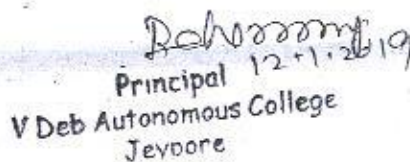 12.1.2019
Principal
V Deb Autonomous College
Jeypore